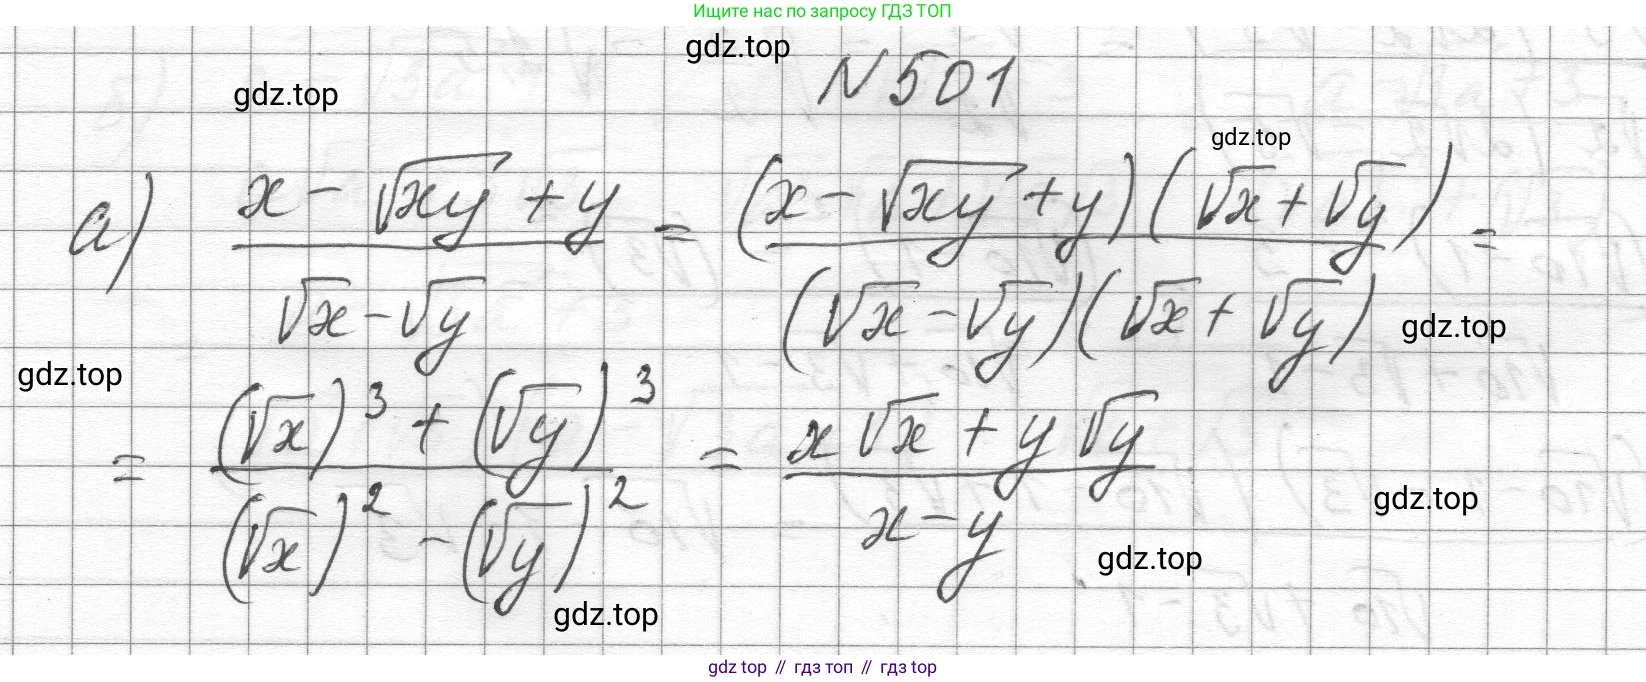 Ищите нас по запросу ГДЗ ТОП
gdz.top
gdz.top
N 501
gdz.top
а) (x - √xy + y)/(√x - √y) = ((x - √xy + y)(√x + √y))/((√x - √y)(√x + √y)) =
gdz.top
gdz.top
= ((√x)³ + (√y)³)/((√x)² - (√y)²) = (x√x + y√y)/(x - y)
gdz.top
gdz.top
gdz.top
gdz top // гдз топ // гдз top